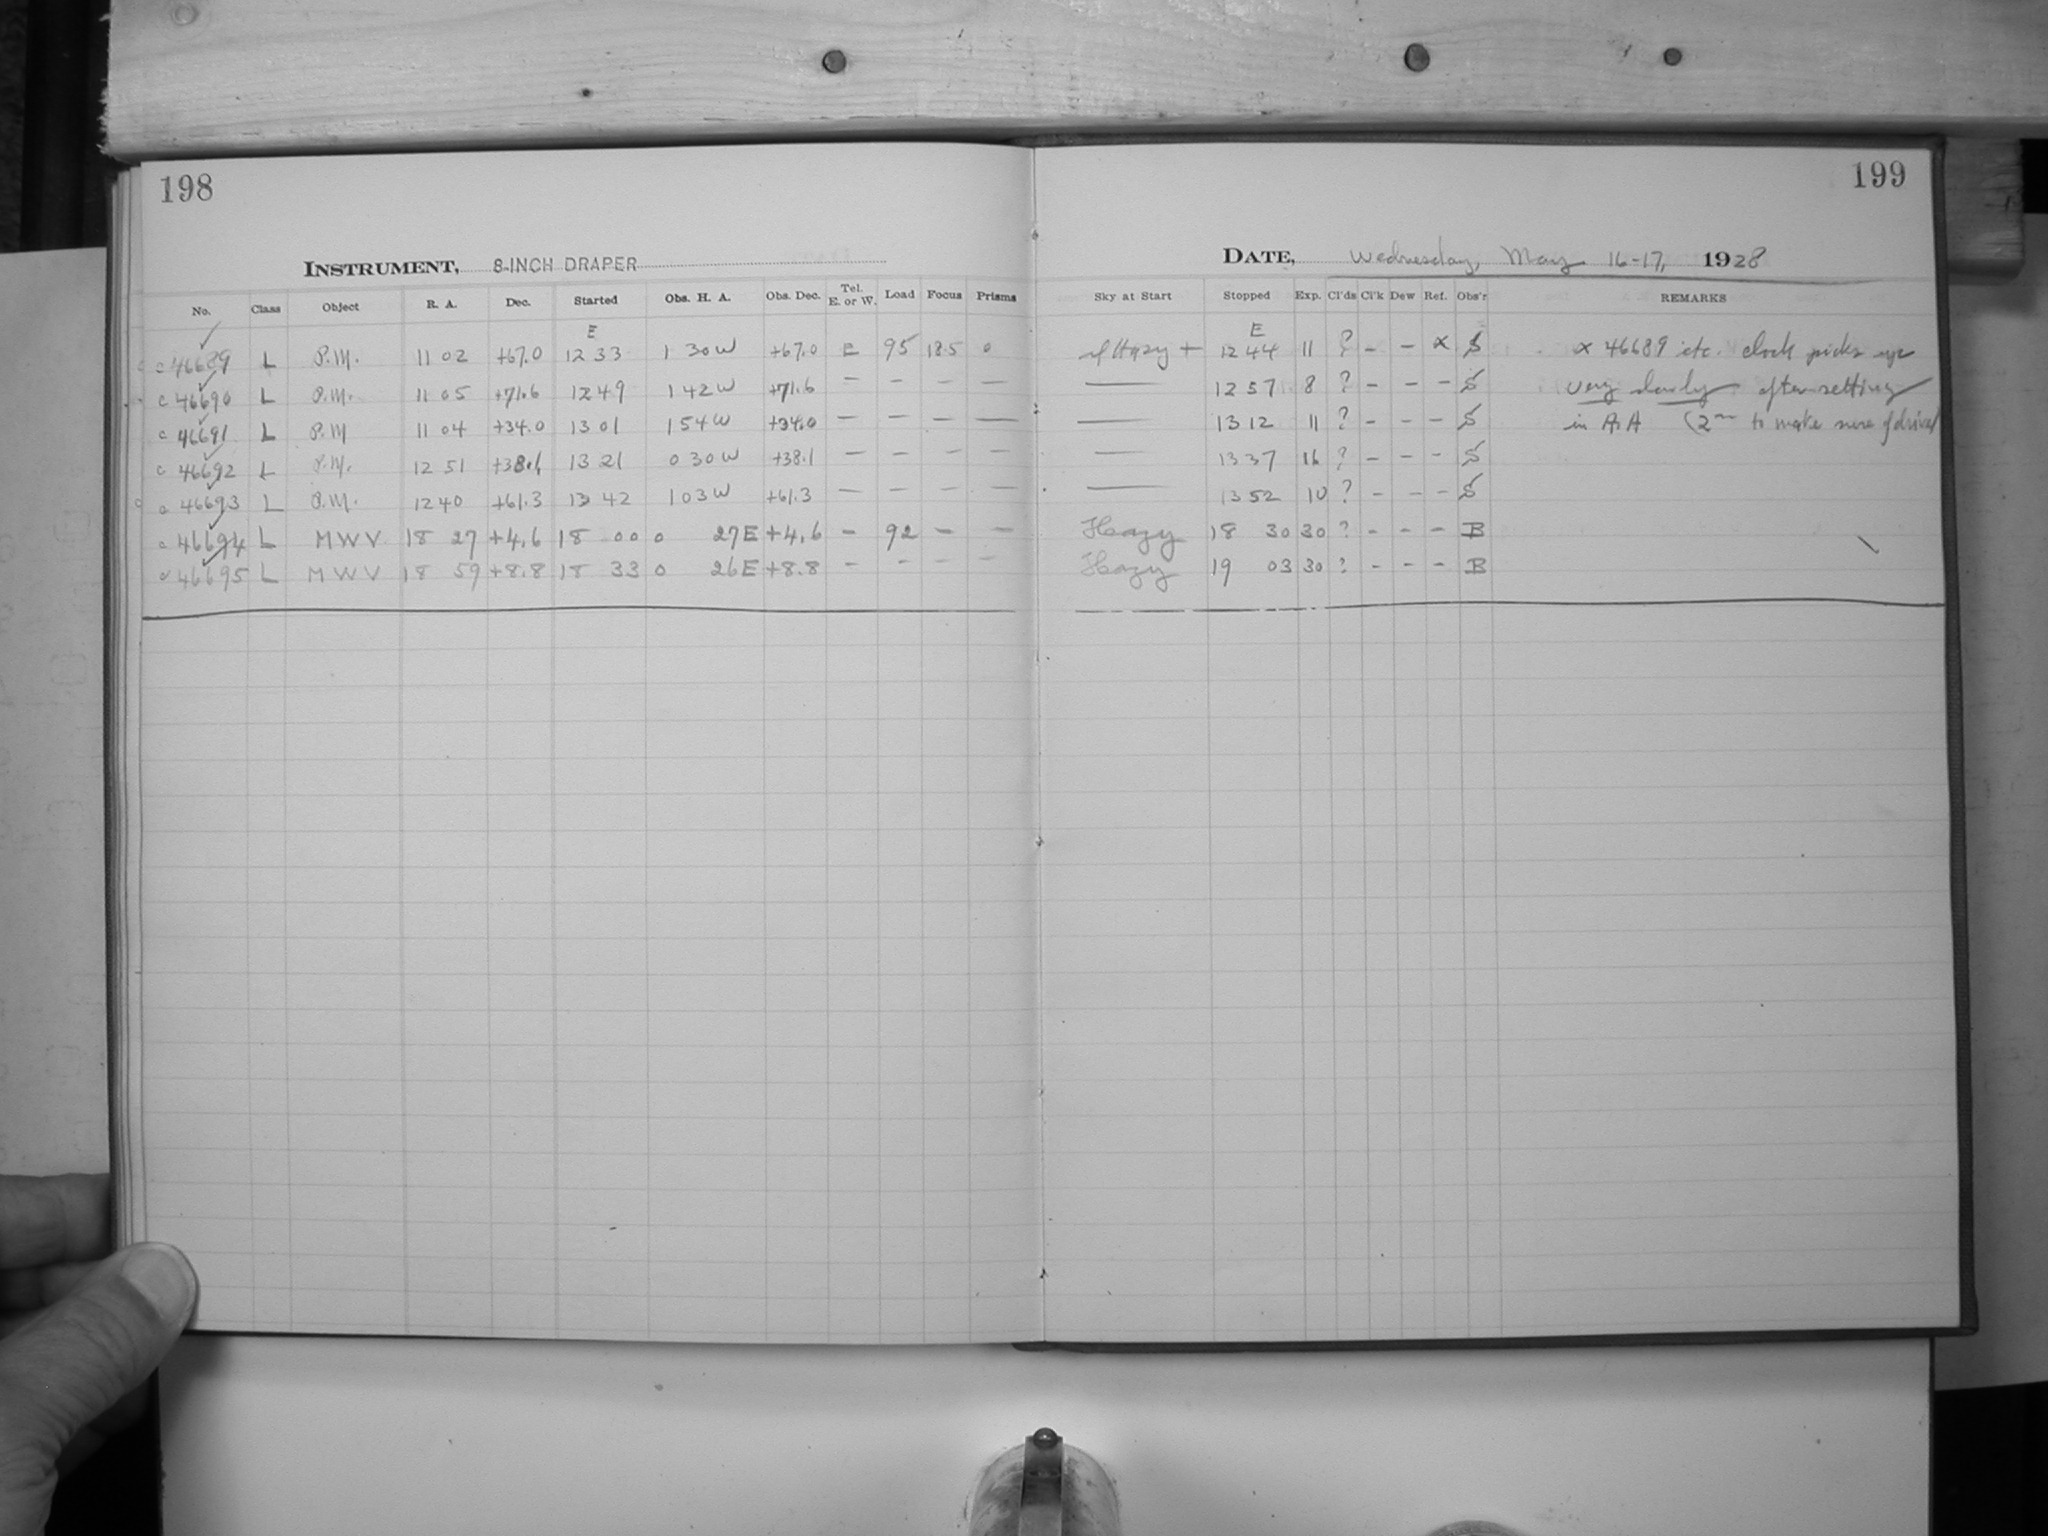 198
INSTRUMENT, 8-INCH DRAPER
No. Class Object R. A. Dec. Started Obs. H. A. Obs. Dec. Tel. E. or W. Load Focus Prisms
E
c 46689 L P.M. 11 02 +67.0 12 33 1 30 W +67.0 E 95 18.5 0
c 46690 L P.M. 11 05 +71.6 12 49 1 42 W +71.6 — — — —
c 46691 L P.M 11 04 +34.0 13 01 1 54 W +34.0 — — — —
c 46692 L P.M. 12 51 +38.1 13 21 0 30 W +38.1 — — — —
c 46693 L P.M. 12 40 +61.3 13 42 1 03 W +61.3 — — — —
c 46694 L MWV 18 27 +4.6 18 00 0 27E +4.6 — 92 — —
c 46695 L MWV 18 59 +8.8 18 33 0 26E +8.8 — - — —
199
DATE, Wednesday, May 16-17, 1928
Sky at Start Stopped Exp. Cl'ds Cl'k Dew Ref. Obs'r REMARKS
E
Hazy + 12 44 11 ? - - x S x 46689 etc. clock picks up
— 12 57 8 ? - - - S very slowly after setting
— 13 12 11 ? - - - S in RA (2m to make sure of drive)
— 13 37 16 ? - - - S
— 13 52 10 ? - - - S
Hazy 18 30 30 ? - - - B
Hazy 19 03 30 ? - - - B